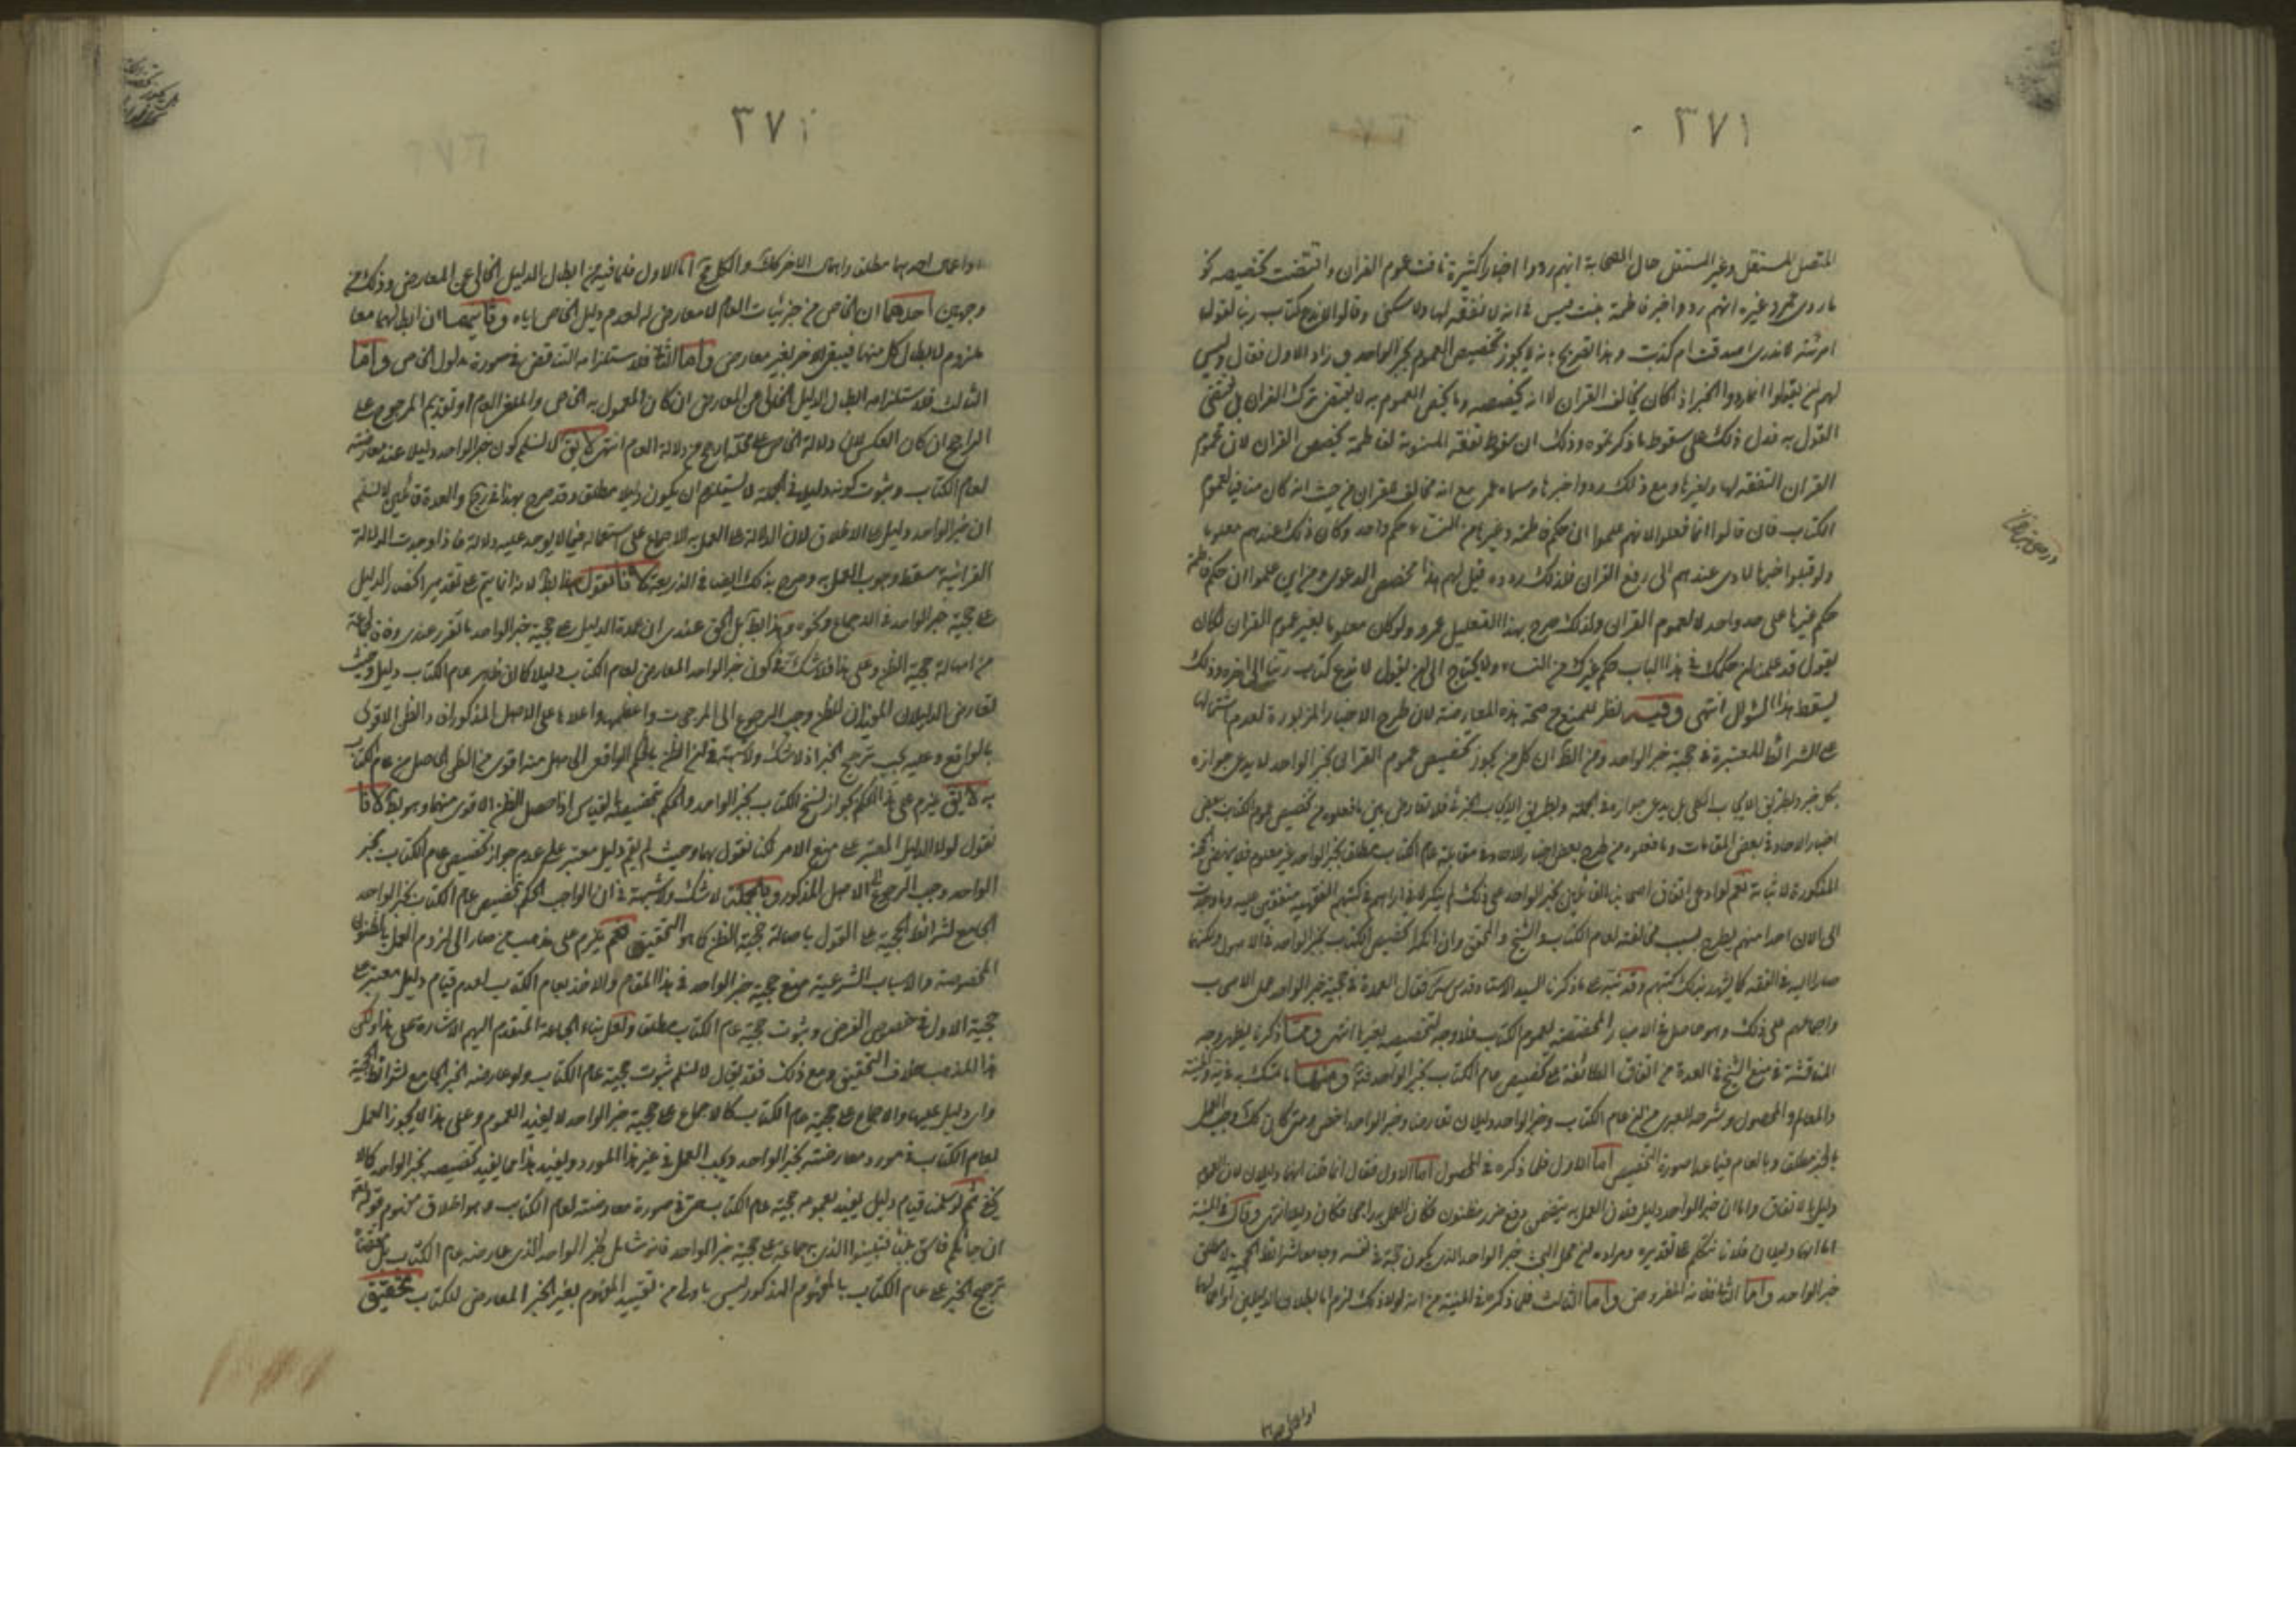 ٣٧١
المتصل للمستقل وغير المستقل حال الصحابة انهم ردوا اخبارا كثيرة نافت عموم القران واقتضت تخصيصه نحو
ما روى عمر وغيره انهم ردوا خبر فاطمة بنت قيس في انه لا نفقة لها ولا سكنى وقالوا لا ندع كتاب ربنا لقول
امرئة لا ندرى اصدقت ام كذبت وهذا تصريح بانه لا يجوز تخصيص العموم بخبر الواحد وزاد الاول فقال وليس
لهم ان يقولوا انما ردوا الخبر اذ كان يخالف القران لا انه يخصصه وما يخص العموم به لا يقتضى ترك القران بل يقتضى
القول به فدل ذلك على سقوط ما ذكرتموه وذلك ان سقوط نفقة المبتوتة لفاطمة يخصص القران لان عموم
القران النفقة لها ولغيرها ومع ذلك ردوا خبرها وسماه عمر مع انه مخالف للقران من حيث انه كان منافيا لعموم
الكتاب فان قالوا انما فعلوا لانهم علموا ان حكم فاطمة وغيرها من النساء حكم واحد وكان ذلك عندهم معلوما
ولو قبلوا خبرها لادى عندهم الى رفع القران فلذلك ردوه قيل لهم هذا محض الدعوى ومن اين علموا ان حكم فاطمة
حكم غيرها على حد واحد لا لعموم القران ولذلك صرح بهذا التعليل عمر ولو كان معلوما بغير عموم القران لكان
يقول قد علمنا ان حكمك في هذا الباب حكم غيرك من النساء ولا يحتاج الى ان يقول لا ندع كتاب ربنا الى اخره وذلك
يسقط هذا السؤال انتهى وفيه نظر للمنع من صحة هذه المعارضة لان طرح الاخبار المزبورة لعدم اشتمالها
على الشرائط المعتبرة في حجية خبر الواحد ومن الظ ان كل من يجوز تخصيص عموم القران بخبر الواحد لا يدعى جوازه
بكل خبر وبطريق الايجاب الكلى بل يدعى جوازه في الجملة وبطريق الايجاب الجزئى فلا تعارض بين ما فعلوه من تخصيص عموم الكتاب ببعض
اخبار الاحاد في بعض المقامات وما فعلوه من طرح بعض اخبار الاحاد في مقابلة عام الكتاب
المذكورة لاثباته نعم لو ادعى اتفاق اصحابنا القائلين بخبر الواحد على ذلك لم ينكر
الى الان احدا منهم يطرح بسبب مخالفته لعام الكتاب والشيخ والمحقق وان انكرا تخصيص الكتاب بخبر الواحد في الاصول ولكنهما
صارا اليه في الفقه كما يشهد بذلك كتبهم وقد نبه على ما ذكرنا السيد الاستاد قدس سره فقال العمدة في حجية خبر الواحد عمل الاصحاب
واجماعهم على ذلك وهو حاصل في الاخبار المخصصة لعموم الكتاب فلا وجه لتخصيصه بغيرها انتهى ومما ذكرنا يظهر وجه
المناقشة في منع الشيخ في العدة من اتفاق الطائفة على تخصيص عام الكتاب بخبر الواحد ومنها ما تمسك به في
والمعالم والمحصول وشرحه للعبرى من ان عام الكتاب وخبر الواحد دليلان تعارضا وخبر الواحد اخص ومتى كان كك وجب العمل
بالخبر مطلق وبالعام فيما عدا صورة التخصيص اما الاول فلما ذكره في المحصول اما الاول فقال انما قلنا انهما دليلان لان العموم
دليل بالاتفاق واما ان خبر الواحد دليل فلان العمل به يتضمن دفع ضرر مظنون فكان العمل به واجبا فكان دليلا انتهى وقال في المنية
اما انهما دليلان فلانا نتكلم على تقديره ومراده من
خبر الواحد واما الثانى فلانه المفروض واما الثالث فلما ذكره في المنية من انه لولا ذلك لزم اما ابطال الدليلين او اعمالهما
او اعمالهما
٣٧٢
او اعمال احدهما مطلق واهمال الاخر كك والكل بط اما الاول فلما فيه من ابطال الدليل الخالى عن المعارض وذلك من
وجهين احدهما ان الخاص من جزئيات العام لا معارض له لعدم دليل الخاص اياه وثانيهما ان ابطالهما معا
ملزوم لابطال كل منهما فيبقى الاخر بغير معارض واما الثانى فلاستلزامه التناقض في صورة مدلول الخاص واما
الثالث فلاستلزامه ابطال الدليل الخالى عن المعارض ان كان المعمول به الخاص والملغى العام او تقديم المرجوح على
الراجح ان كان العكس لان دلالة الخاص على محله ارجح من دلالة العام انتهى لا يق لا نسلم كون خبر الواحد دليلا عند معارضته
لعام الكتاب وثبوت كونه دليلا في الجملة لا يستلزم ان يكون دليلا مطلق وقد صرح بهذا في رج والعدة قائلين لا نسلم
ان خبر الواحد دليل على الاطلاق لان الدلالة على العمل به الاجماع على استعماله فيما لا يوجد عليه دلالة فاذا وجدت الدلالة
القرانية سقط وجوب العمل به وصرح بذلك ايضا في الذريعة لانا نقول هذا بط لانه انما يتم على تقدير انحصار الدليل
على حجية خبر الواحد في الاجماع ونحوه وهذا بط بل الحق عندى ان عمدة الدليل على حجية خبر الواحد ما تقرر عندى وفاقا لجماعة
من اصالة حجية الظن وعلى هذا فلا شك في كون خبر الواحد المعارض لعام الكتاب دليلا كما ان ظاهر عام الكتاب دليل وحيث
تعارض الدليلان الموثران للظن وجب الرجوع الى المرجحات واعظمها واعلاها على الاصل المذكور ان الظن الاقوى
بالواقع وعليه يجب ترجيح الخبر اذ لا شك ولا شبهة في ان الظن بالحكم الواقعى الحاصل منه اقوى من الظن الحاصل من عام الكتاب
به لا يق يلزم على هذا الحكم بجواز نسخ الكتاب بخبر الواحد والحكم بتخصيصه بالقياس اذا حصل الظن الاقوى منهما وهو بط لانا
نقول لولا الدليل المعتبر على منع الامر لكنا نقول بهما وحيث لم يقم دليل معتبر على عدم جواز تخصيص عام الكتاب بخبر
الواحد وجب الرجوع الى الاصل المذكور وبالجملة لا شك ولا شبهة في ان الواجب الحكم بتخصيص عام الكتاب بخبر الواحد
الجامع لشرائط الحجية على القول باصالة حجية الظن كما هو التحقيق نعم يلزم على مذهب من صار الى لزوم العمل بالظنون
المخصوصة والاسباب الشرعية منع حجية خبر الواحد في هذا المقام والاخذ بعام الكتاب لعدم قيام دليل معتبر على
حجية الاول في خصوص الفرض وثبوت حجية عام الكتاب مطلق ولعل بناء الجماعة المتقدم اليهم الاشارة على هذا ولكن
هذا المذهب خلاف التحقيق ومع ذلك فقد يقال لا نسلم ثبوت حجية عام الكتاب ولو عارضه الخبر الجامع لشرائط الحجية
واى دليل عليها والاجماع على حجية عام الكتاب كالاجماع على حجية خبر الواحد لا يفيد العموم وعلى هذا لا يجوز العمل
بعام الكتاب في مورد معارضته لخبر الواحد ويجب العمل في غير هذا المورد ويفيد هذا ما يفيد تخصيصه بخبر الواحد كما لا
يخفى ثم لو سلمنا قيام دليل يفيد بعمومه حجية عام الكتاب حتى في صورة معارضته لعام الكتاب وهو اطلاق مفهوم قوله تعالى
ان جائكم فاسق بنبأ فتبينوا الذى به جماعة على حجية خبر الواحد فانه شامل لخبر الواحد الذى عارضه عام الكتاب بل
ترجيح الخبر على عام الكتاب بالمفهوم المذكور ليس باولى من تقييد المفهوم بغير الخبر المعارض للكتاب بتحقيق